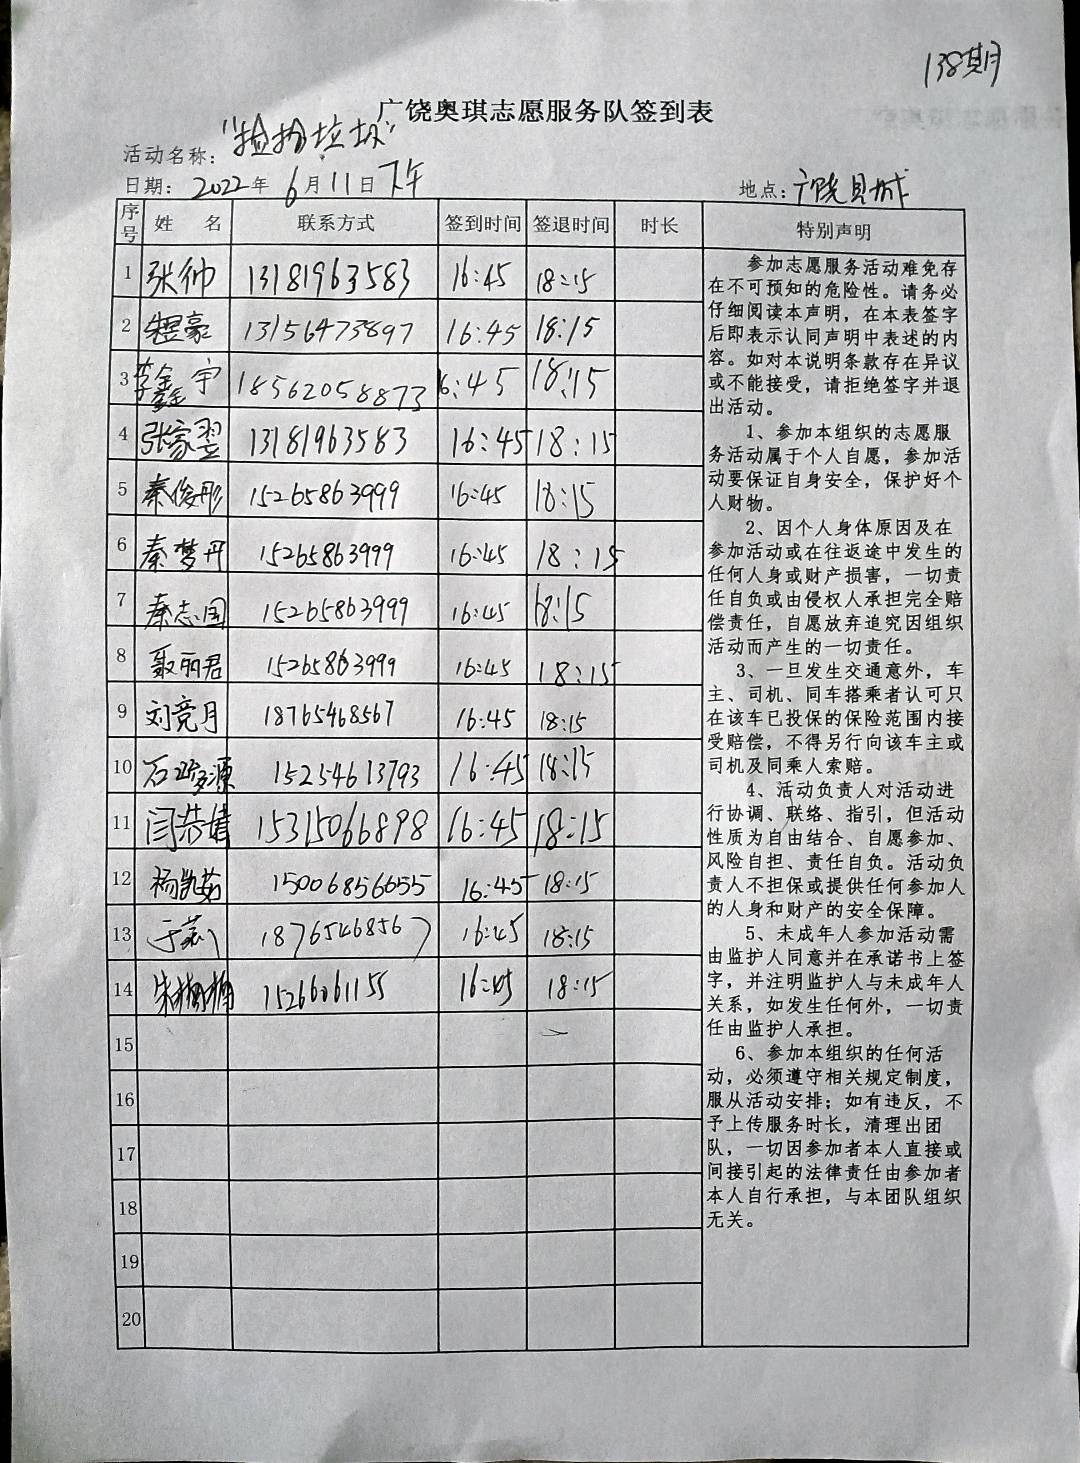 138期
广饶奥琪志愿服务队签到表
活动名称：“捡拾垃圾”
日期：2022年6月11日下午 地点：广饶县城
序号 姓名 联系方式 签到时间 签退时间 时长 特别声明
1 张帅 13181963583 16:45 18:15
2 程豪 13156473897 16:45 18:15
3 李鑫宇 18562058873 16:45 18:15
4 张家翌 13181963583 16:45 18:15
5 秦俊彤 15265863999 16:45 18:15
6 秦梦丹 15265863999 16:45 18:15
7 秦志国 15265863999 16:45 18:15
8 聂丽君 15265863999 16:45 18:15
9 刘竞月 18765468567 16:45 18:15
10 石 源 15254613793 16:45 18:15
11 闫浩婧 15315066898 16:45 18:15
12 杨凯茹 15006856655 16:45 18:15
13 于莉 18765468567 16:45 18:15
14 朱楠楠 15266061155 16:45 18:15
15
16
17
18
19
20
参加志愿服务活动难免存
在不可预知的危险性。请务必
仔细阅读本声明，在本表签字
后即表示认同声明中表述的内
容。如对本说明条款存在异议
或不能接受，请拒绝签字并退
出活动。
1、参加本组织的志愿服
务活动属于个人自愿，参加活
动要保证自身安全，保护好个
人财物。
2、因个人身体原因及在
参加活动或在往返途中发生的
任何人身或财产损害，一切责
任自负或由侵权人承担完全赔
偿责任，自愿放弃追究因组织
活动而产生的一切责任。
3、一旦发生交通意外，车
主、司机、同车搭乘者认可只
在该车已投保的保险范围内接
受赔偿，不得另行向该车主或
司机及同乘人索赔。
4、活动负责人对活动进
行协调、联络、指引，但活动
性质为自由结合、自愿参加、
风险自担、责任自负。活动负
责人不担保或提供任何参加人
的人身和财产的安全保障。
5、未成年人参加活动需
由监护人同意并在承诺书上签
字，并注明监护人与未成年人
关系，如发生任何外，一切责
任由监护人承担。
6、参加本组织的任何活
动，必须遵守相关规定制度，
服从活动安排；如有违反，不
予上传服务时长，清理出团
队，一切因参加者本人直接或
间接引起的法律责任由参加者
本人自行承担，与本团队组织
无关。